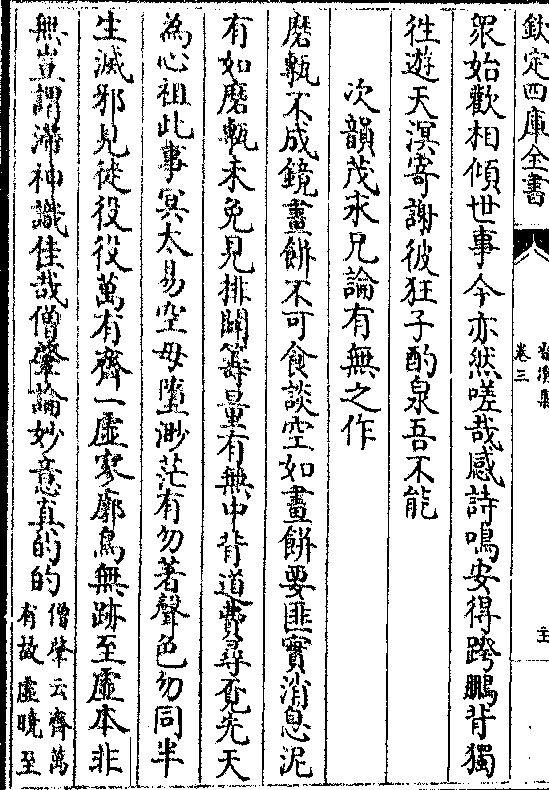 欽定四庫全書
卷三
衆始歡相傾世事今亦然嗟哉感詩鳴安得跨鵬背獨
徃遊天溟寄謝彼狂子酌泉吾不能
次韻茂永兄論有無之作
磨甎不成鏡畫餅不可食談空如畫餅要匪實消息泥
有如磨甎未免見排闢籌量有無中背道費尋覔先天
為心祖此事㝠太易空毋墮渺茫有勿著聲色勿同半
生滅邪見徒役役萬有齊一虛寥廓鳥無跡至虛本非
無豈謂滯神識佳哉僧肇論妙意直的的僧肇云齊萬
有故虛曉至